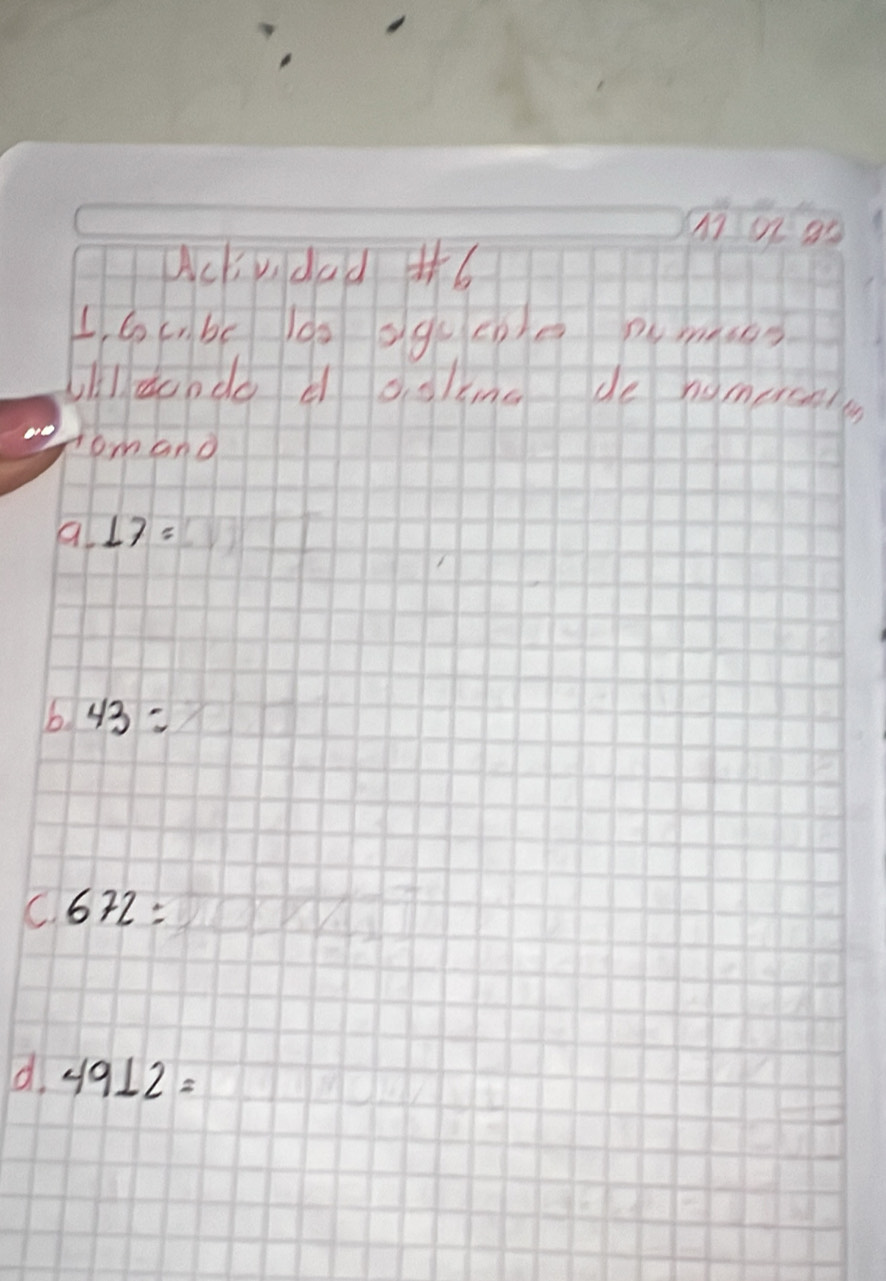 Actividad #6
1. Escribe los siguientes numeros
utilizando el sistema de numeracion
romano
a. 17 =
b. 43 =
c. 672 =
d. 4912 =